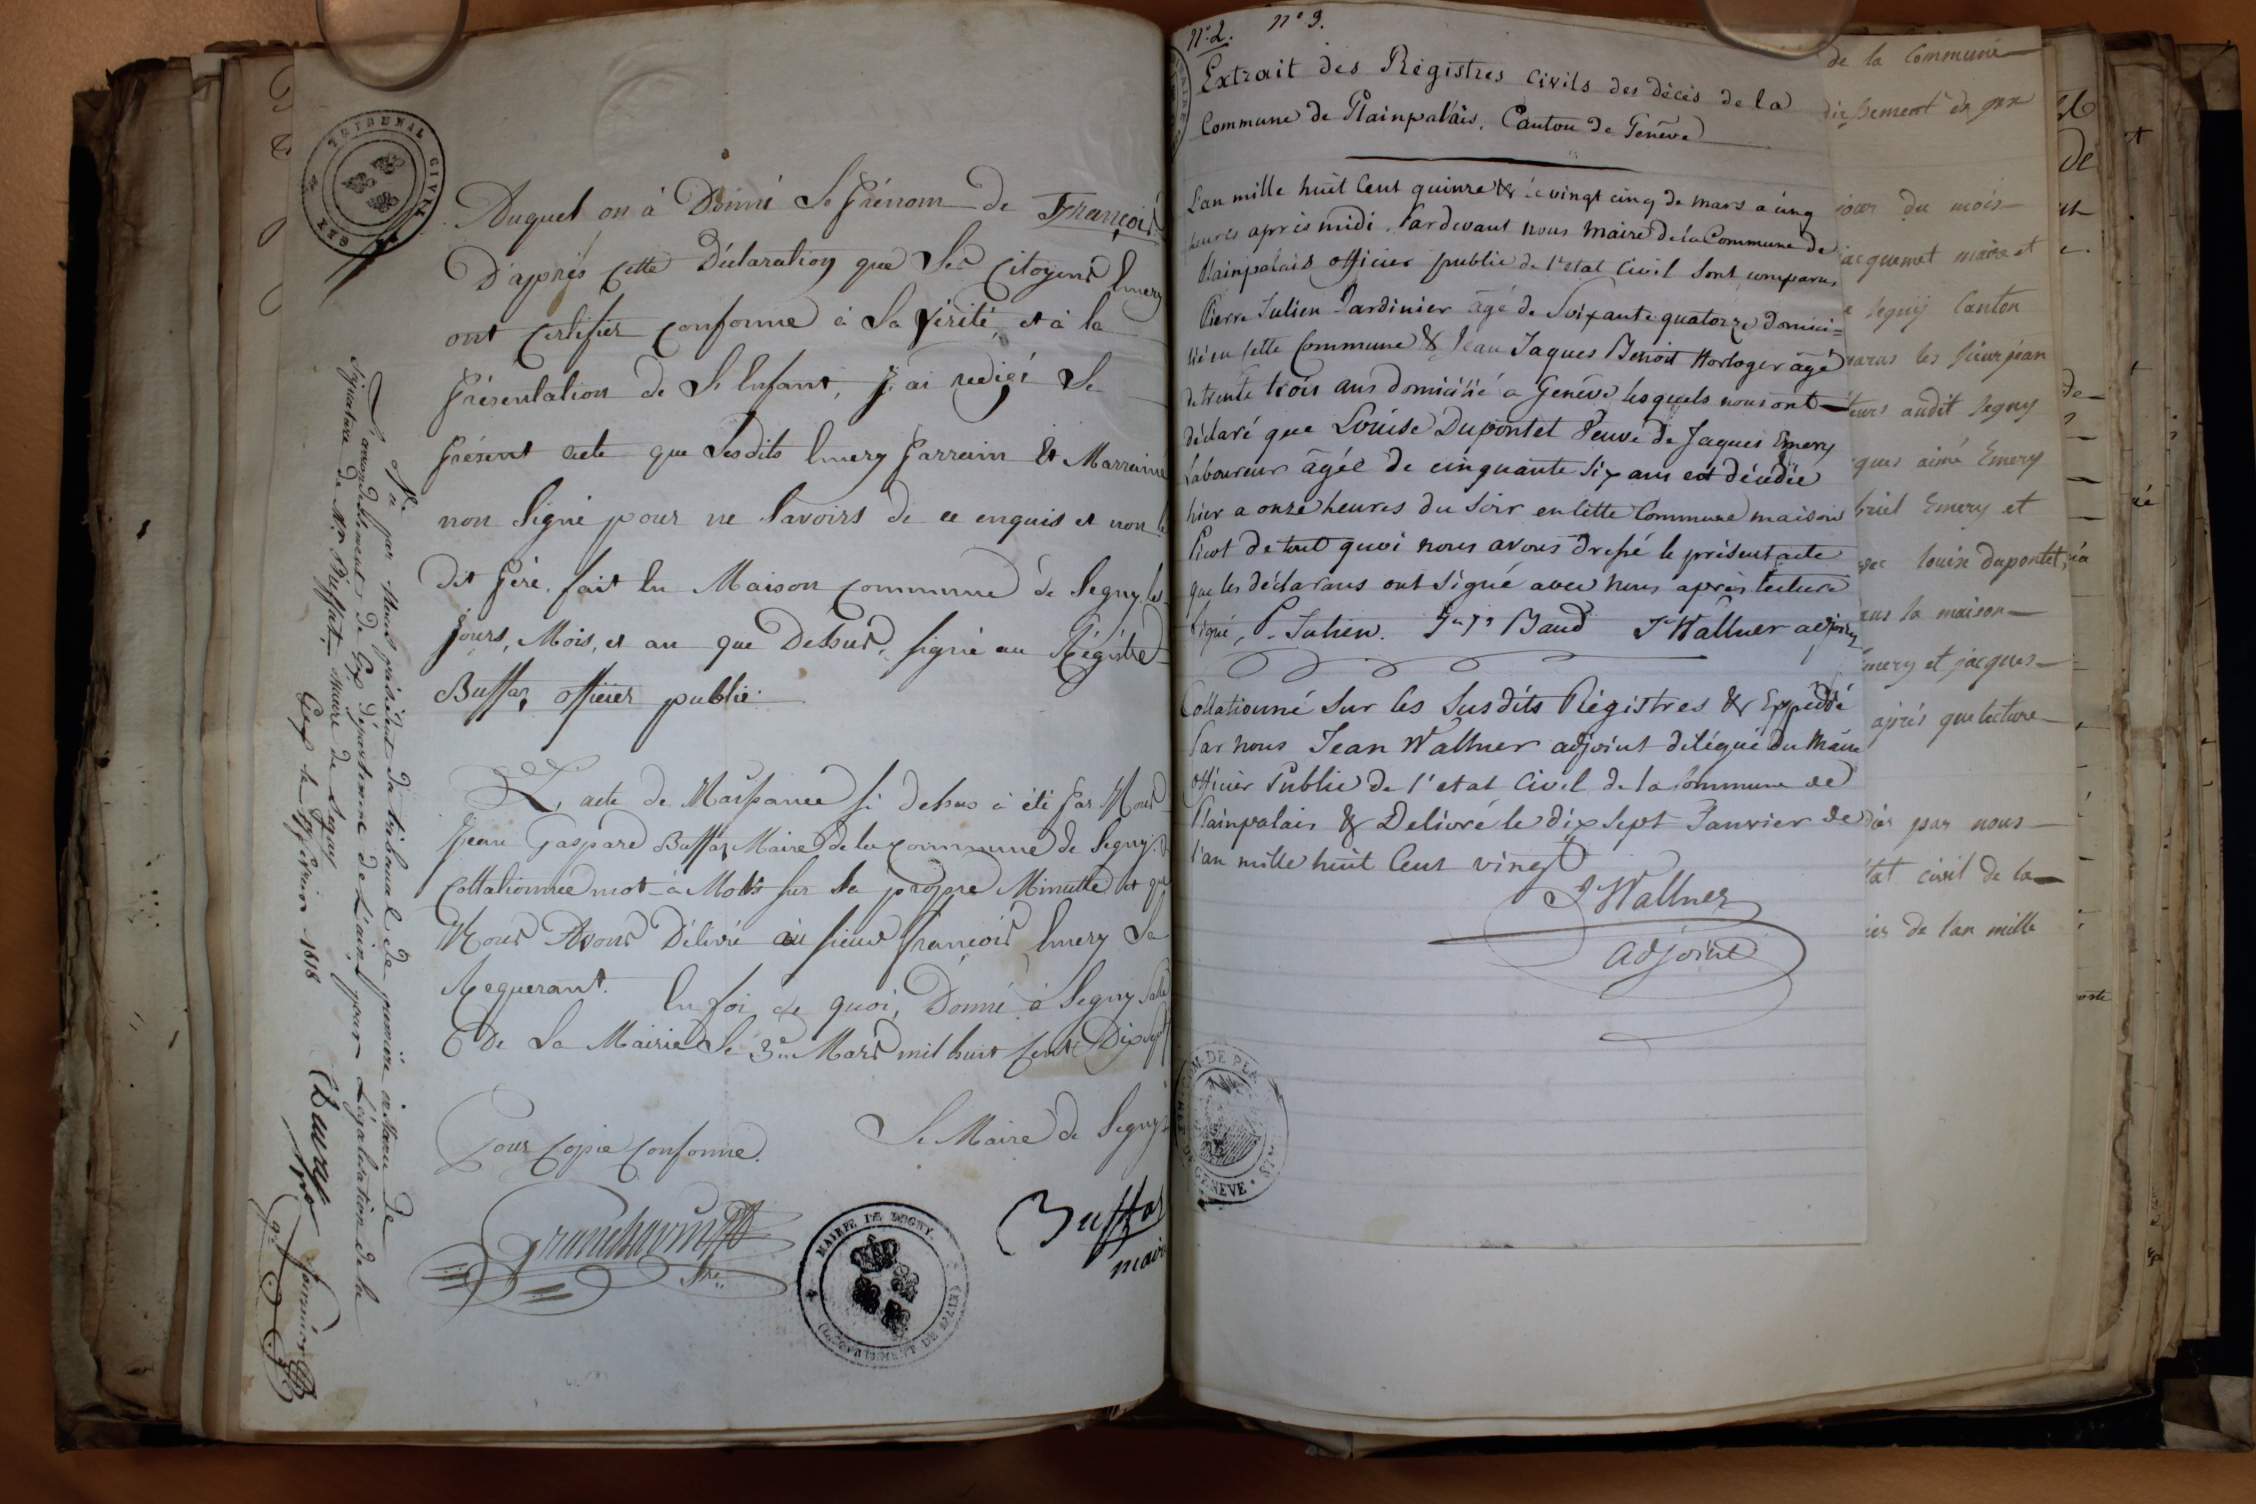 TRIBUNAL CIVIL
GEX
Auquel on à Donné Le Prénom de François
D'après Cette Déclaration que Les Citoyens Emery
ont Certifier Conforme à La Vérité, et à la
Présentation de L'Enfant, J'ai redigé Le
Présent acte que Lesdits Emery Parrain Et Marraine
non Signé pour ne Savoirs de ce enquis et non le
dit Père. fait En Maison Commune de Segny les
Jours, Mois, et an que Dessus, signé au Régistre
Buffaz officier public.
L'acte de Naissance si dessus à été par Nous
Jean Gaspard Buffaz Maire de la Commune de Segny
Collationnée mot à Mots sur la propre Minutte et que
Nous Avons Délivré au sieur François Emery Le
Requerant. En foi de quoi, Donné à Segny Salle
De La Mairie Le 3e Mars mil huit Cent Dix sept
Pour Copie Conforme. Le Maire de Segny
Buffaz
maire
MAIRIE DE SEGNY
Vu par Nous président du tribunal de première instance de
L'arrondissement de Gex département de L'ain, pour Légalisation de la
Signature de Mr. Buffat, Maire de Segny
Gex le février 1818
N°. 2. N° 3.
Extrait des Régistres Civils des décès de la
Commune de Plainpalais, Canton de Genève
L'an mille huit Cent quinze & le vingt cinq de mars a cinq
heures après midi. Pardevant nous Maire de la Commune de
Plainpalais officier public de l'etat Civil sont comparus
Pierre Julien Jardinier âgé de Soixante quatorze domici=
lié en cette Commune & Jean Jaques Benoit Horloger âgé
de trente trois ans domicilié a Genève lesquels nous ont
déclaré que Louise Dupontet Veuve de Jaques Emery
Laboureur âgée de cinquante Six ans est décédée
hier a onze heures du Soir en cette Commune maison
Picot de tout quoi nous avons dressé le présent acte
que les déclarans ont signé avec nous après lecture
signé, P. Julien. Baud J Wallner adjoint
Collationné Sur les Susdits Régistres & Expédié
Par nous Jean Wallner adjoint délégué du Maire
Officier Public de l'etat Civil de la Commune de
Plainpalais & Delivré le dix Sept Janvier de
l'an mille huit Cent vingt
J Wallner
adjoint
GENEVE
de la Commune
dissement de gex
jour du mois
jacquemet maire et
segny Canton
les sieur jean
audit segny
aimé Emery
Emery et
louise dupontet,
la maison
Emery et jacques
après que lecture
par nous
état civil de la
de l'an mille